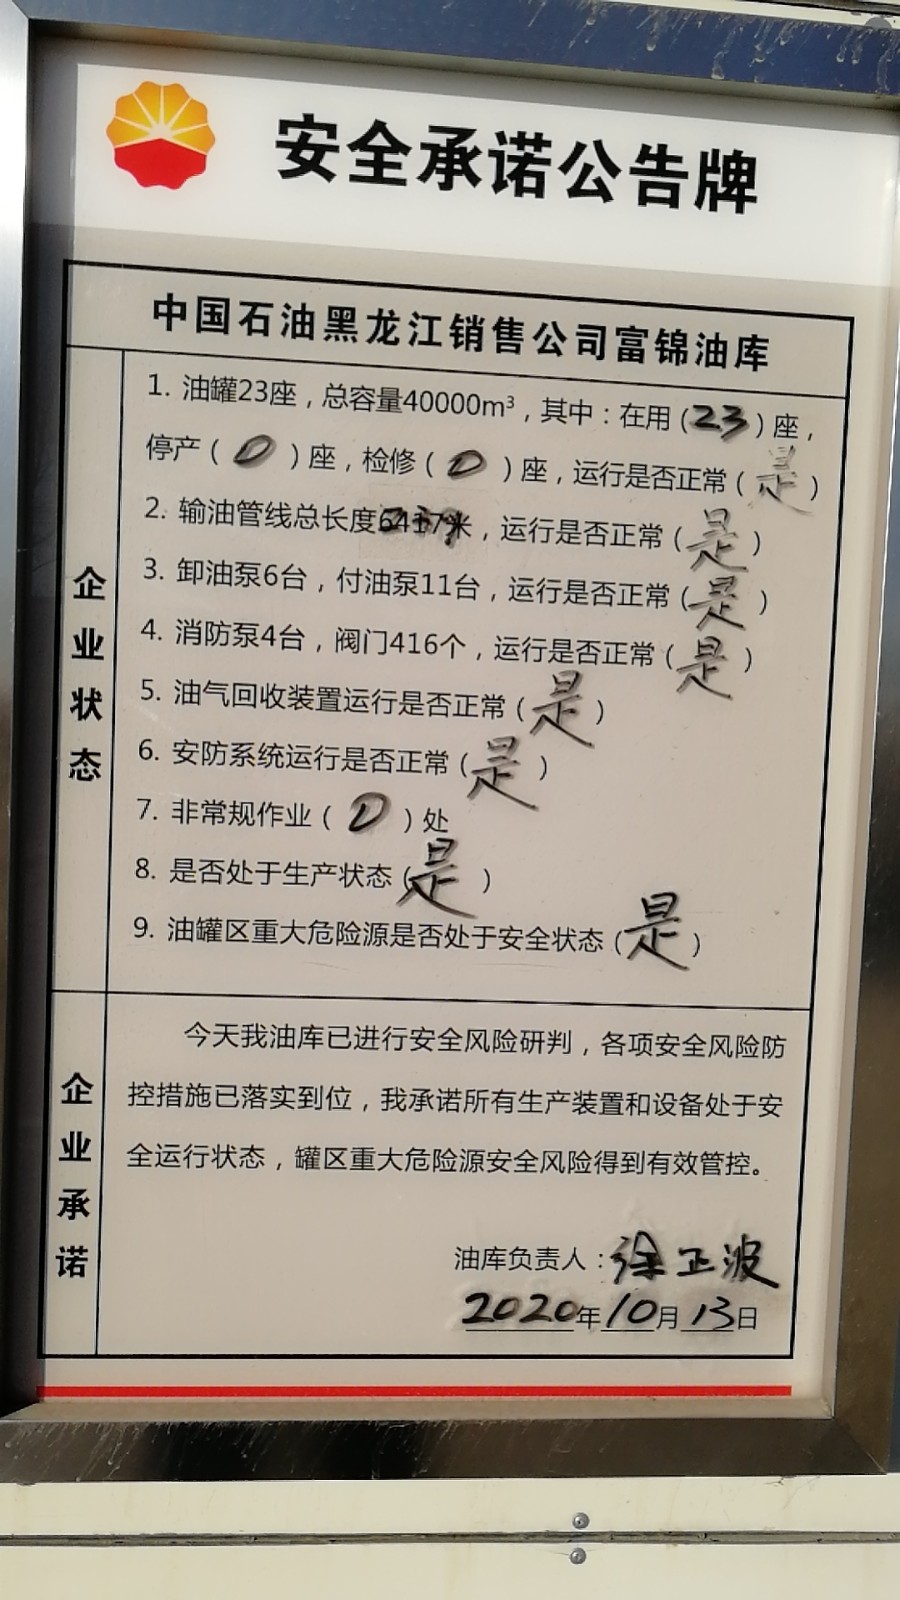 安全承诺公告牌
中国石油黑龙江销售公司富锦油库
企业状态
1. 油罐23座，总容量40000m³，其中：在用（23）座，
停产（0）座，检修（0）座，运行是否正常（是）
2. 输油管线总长度米，运行是否正常（是）
3. 卸油泵6台，付油泵11台，运行是否正常（是）
4. 消防泵4台，阀门416个，运行是否正常（是）
5. 油气回收装置运行是否正常（是）
6. 安防系统运行是否正常（是）
7. 非常规作业（0）处
8. 是否处于生产状态（是）
9. 油罐区重大危险源是否处于安全状态（是）
企业承诺
今天我油库已进行安全风险研判，各项安全风险防
控措施已落实到位，我承诺所有生产装置和设备处于安
全运行状态，罐区重大危险源安全风险得到有效管控。
油库负责人：徐正波
2020年10月13日